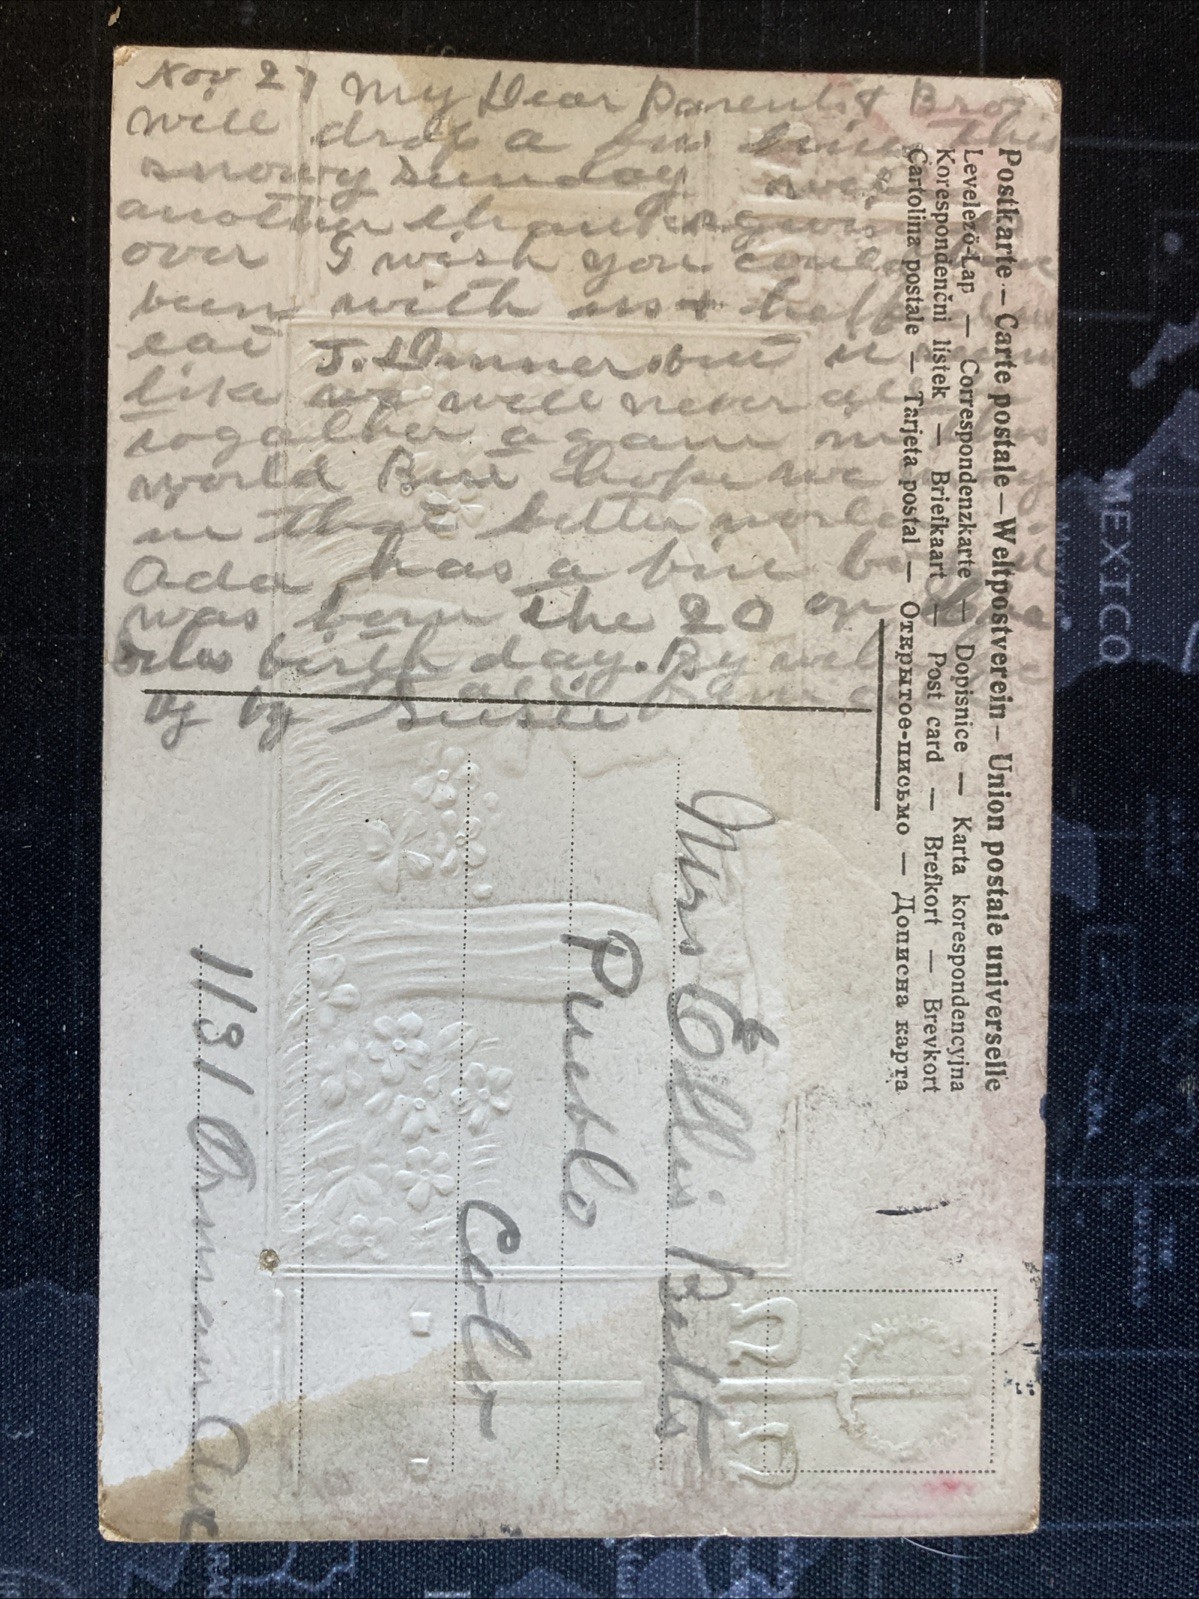 Nov 27 My Dear Parents & Bro
will drop a few lines this
snowy Sunday
another thanksgiving
over I wish you could
been with us & help
eat T. Dinner but it
like we will never all
together again in this
world But hope we
in that better world
Ada has a fine
was born the 20 on
birth day. By
by by Susie
Postkarte — Carte postale — Weltpostverein — Union postale universelle
Levelező-Lap — Correspondenzkarte — Dopisnice — Karta korespondencyjna
Korespondenčni listek — Briefkaart — Post card — Brefkort — Brevkort
Cartolina postale — Tarjeta postal — Открытое-письмо — Дописна карта
Mrs Ellis Betts
Pueblo
Colo
1131 Ave
MEXICO